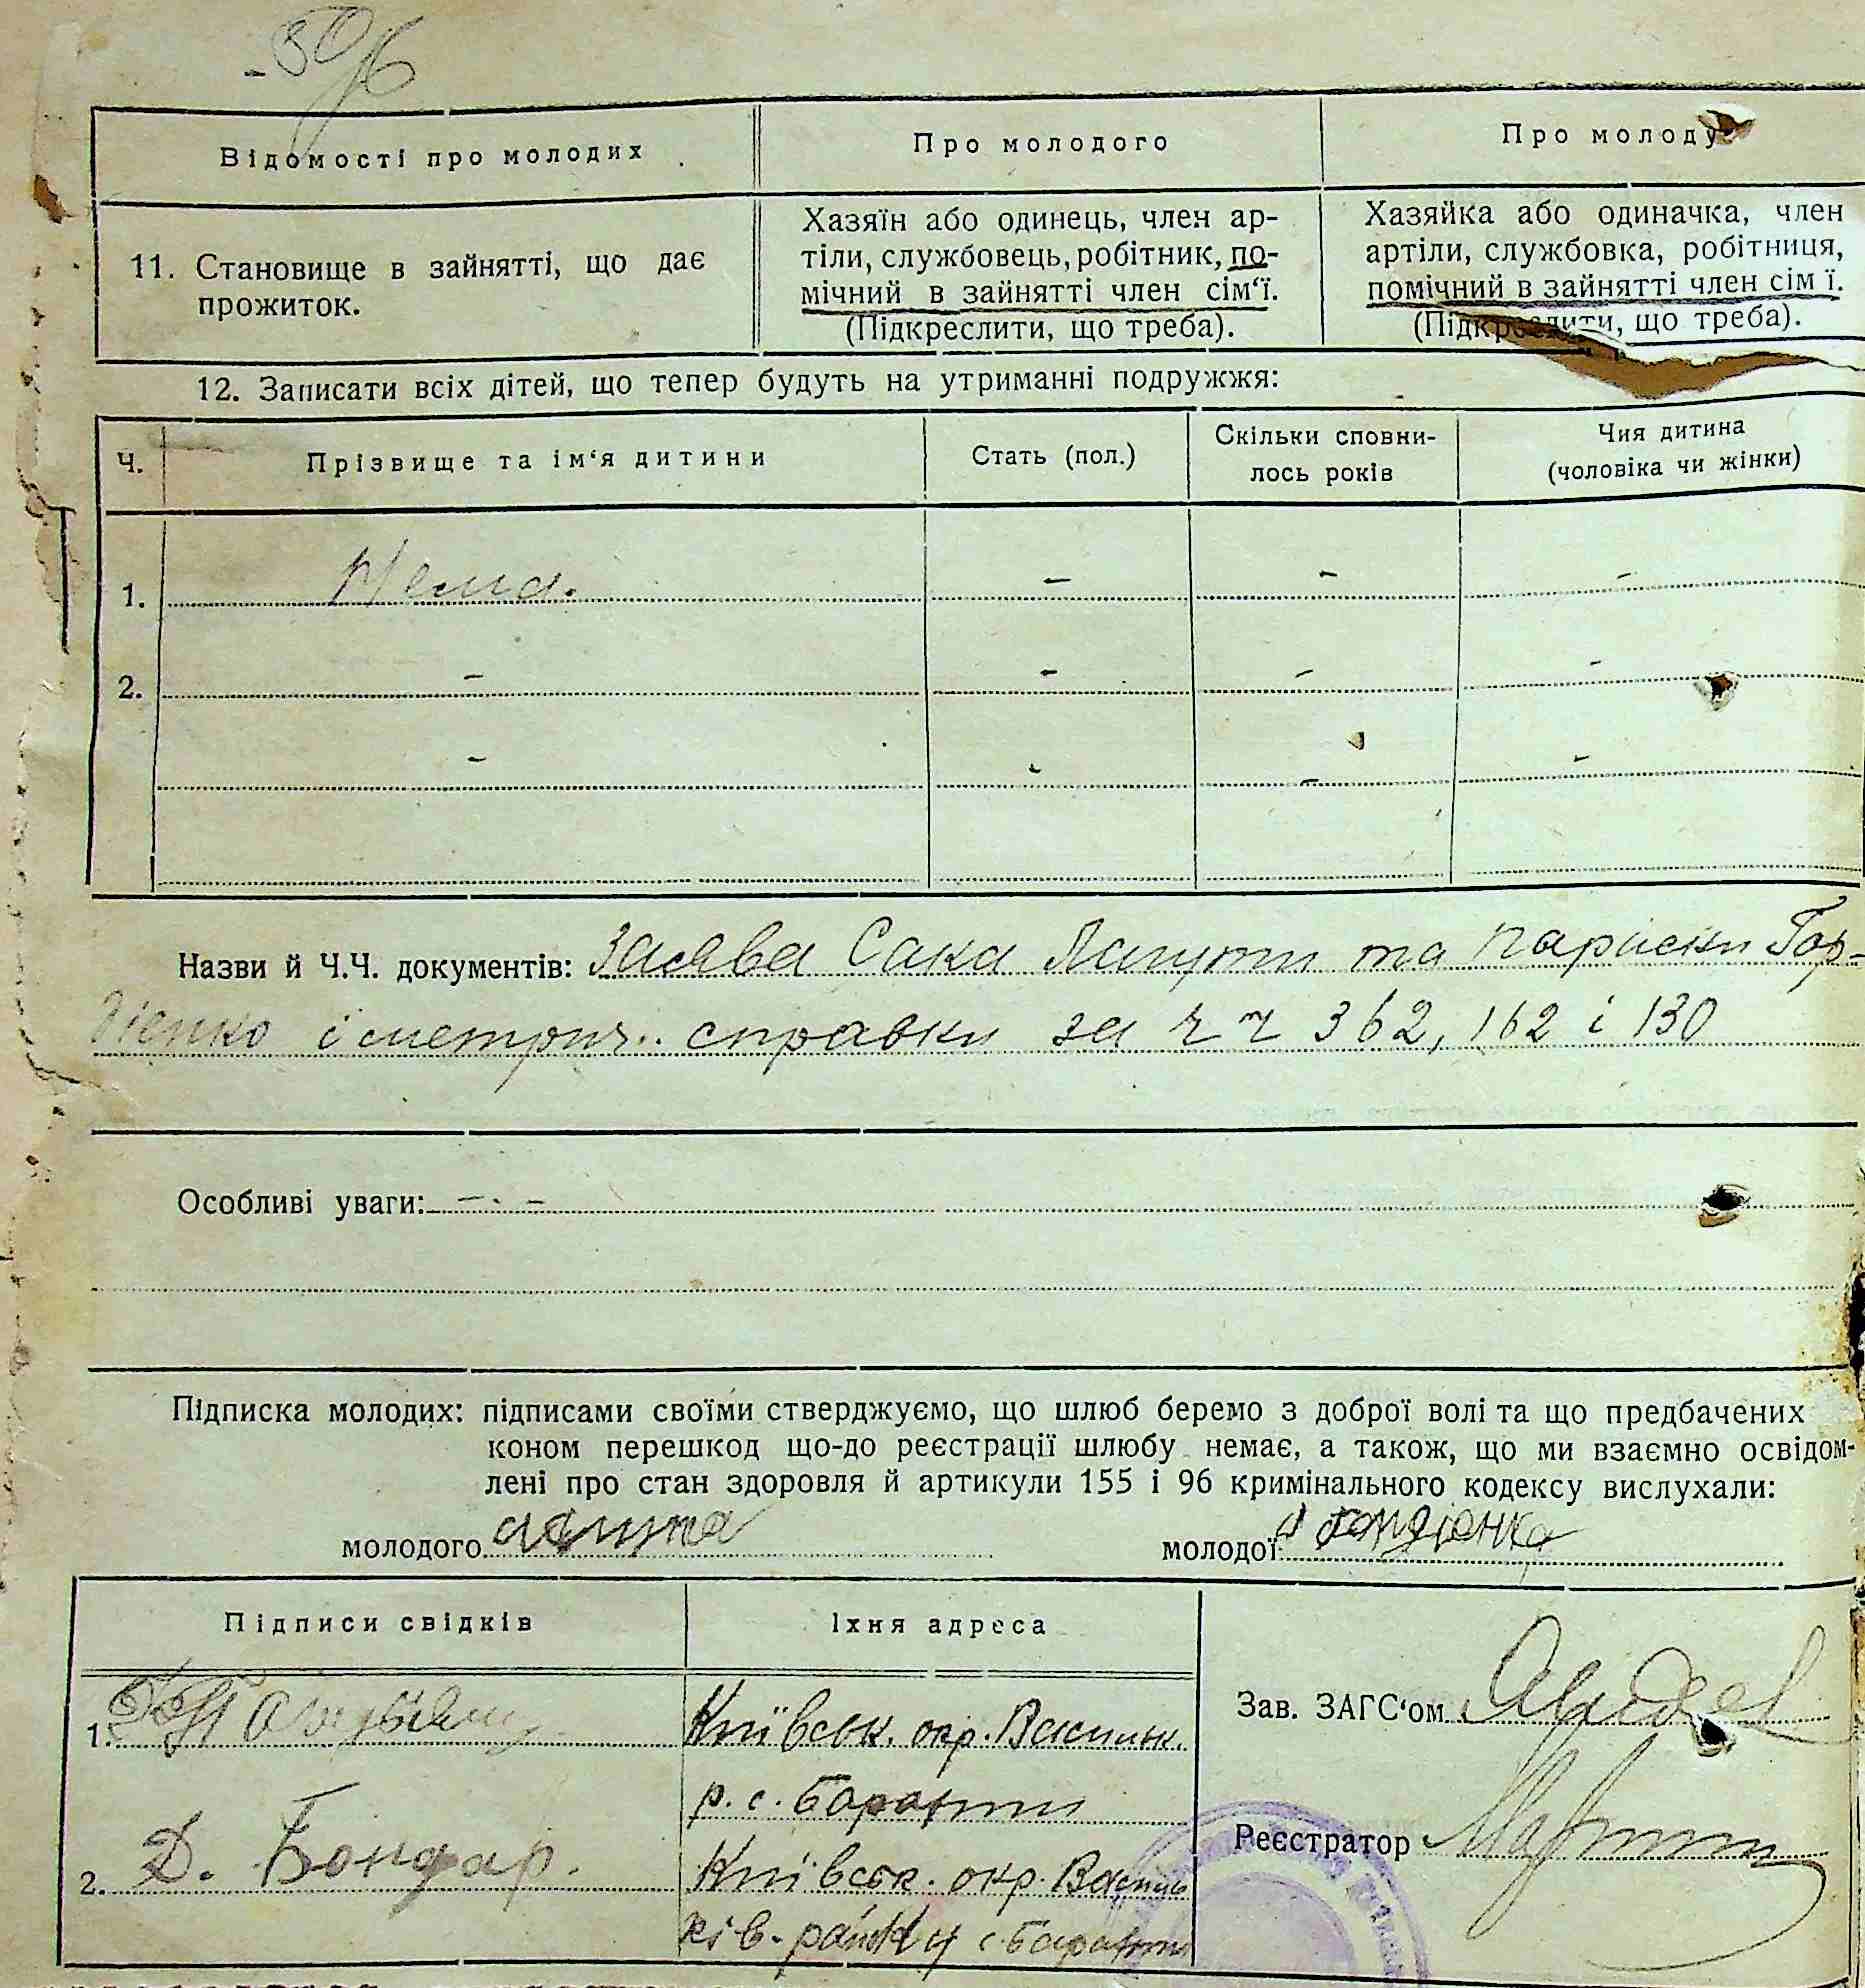 Відомості про молодих
Про молодого
Про молоду
11. Становище в зайнятті, що дає
прожиток.
Хазяїн або одинець, член ар-
тіли, службовець, робітник, по-
мічний в зайнятті член сім'ї.
(Підкреслити, що треба).
Хазяйка або одиначка, член
артіли, службовка, робітниця,
помічний в зайнятті член сім ї.
(Підкреслити, що треба).
12. Записати всіх дітей, що тепер будуть на утриманні подружжя:
Ч.
Прізвище та ім'я дитини
Стать (пол.)
Скільки сповни-
лось років
Чия дитина
(чоловіка чи жінки)
1. Нема. - - -
2. - - - -
- - - -
Назви й Ч.Ч. документів: Заява Сака Лапути та Париски Гор-
дієнко і метрич.. справки за чч 362, 162 і 130
Особливі уваги: - . -
Підписка молодих: підписами своїми стверджуємо, що шлюб беремо з доброї волі та що предбачених
коном перешкод що-до реєстрації шлюбу немає, а також, що ми взаємно освідом-
лені про стан здоровля й артикули 155 і 96 кримінального кодексу вислухали:
молодого
молодої
Підписи свідків
Іхня адреса
1.
Київськ. окр. Васильк.
р. с. Барахти
2. Д. Бондар.
Київськ. окр. Василь
ків. району с. Барахти
Зав. ЗАГС'ом
Реєстратор